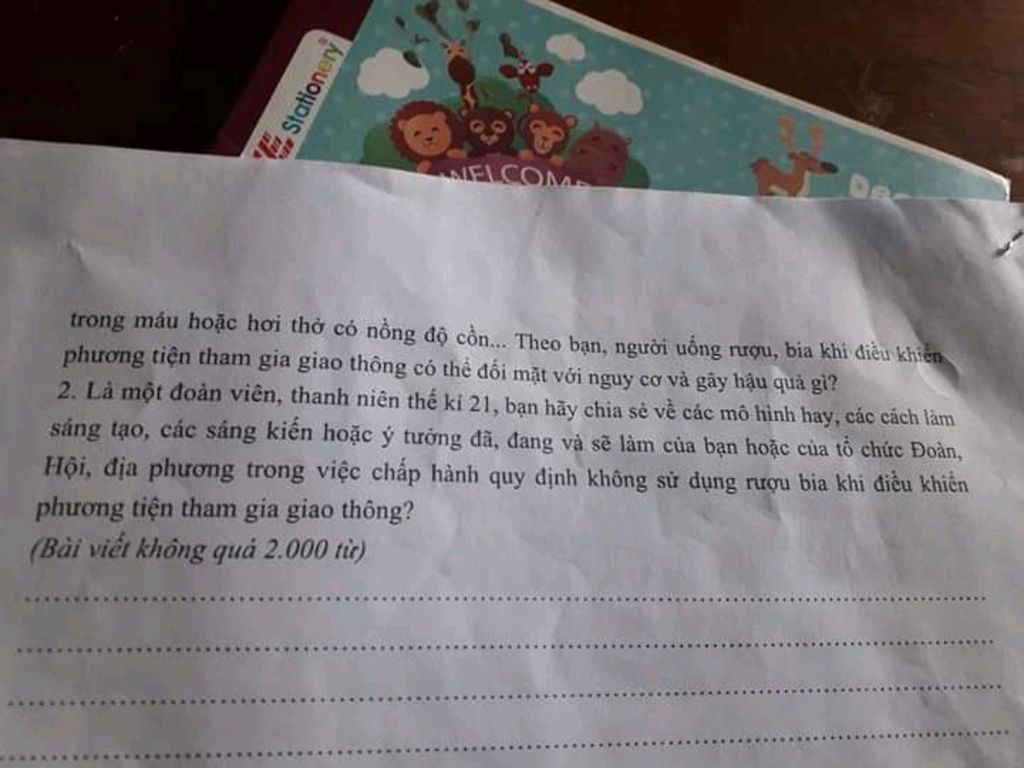 Stationery
WELCOME
trong máu hoặc hơi thở có nồng độ cồn... Theo bạn, người uống rượu, bia khi điều khiển
phương tiện tham gia giao thông có thể đối mặt với nguy cơ và gây hậu quả gì?
2. Là một đoàn viên, thanh niên thế kỉ 21, bạn hãy chia sẻ về các mô hình hay, các cách làm
sáng tạo, các sáng kiến hoặc ý tưởng đã, đang và sẽ làm của bạn hoặc của tổ chức Đoàn,
Hội, địa phương trong việc chấp hành quy định không sử dụng rượu bia khi điều khiển
phương tiện tham gia giao thông?
(Bài viết không quá 2.000 từ)